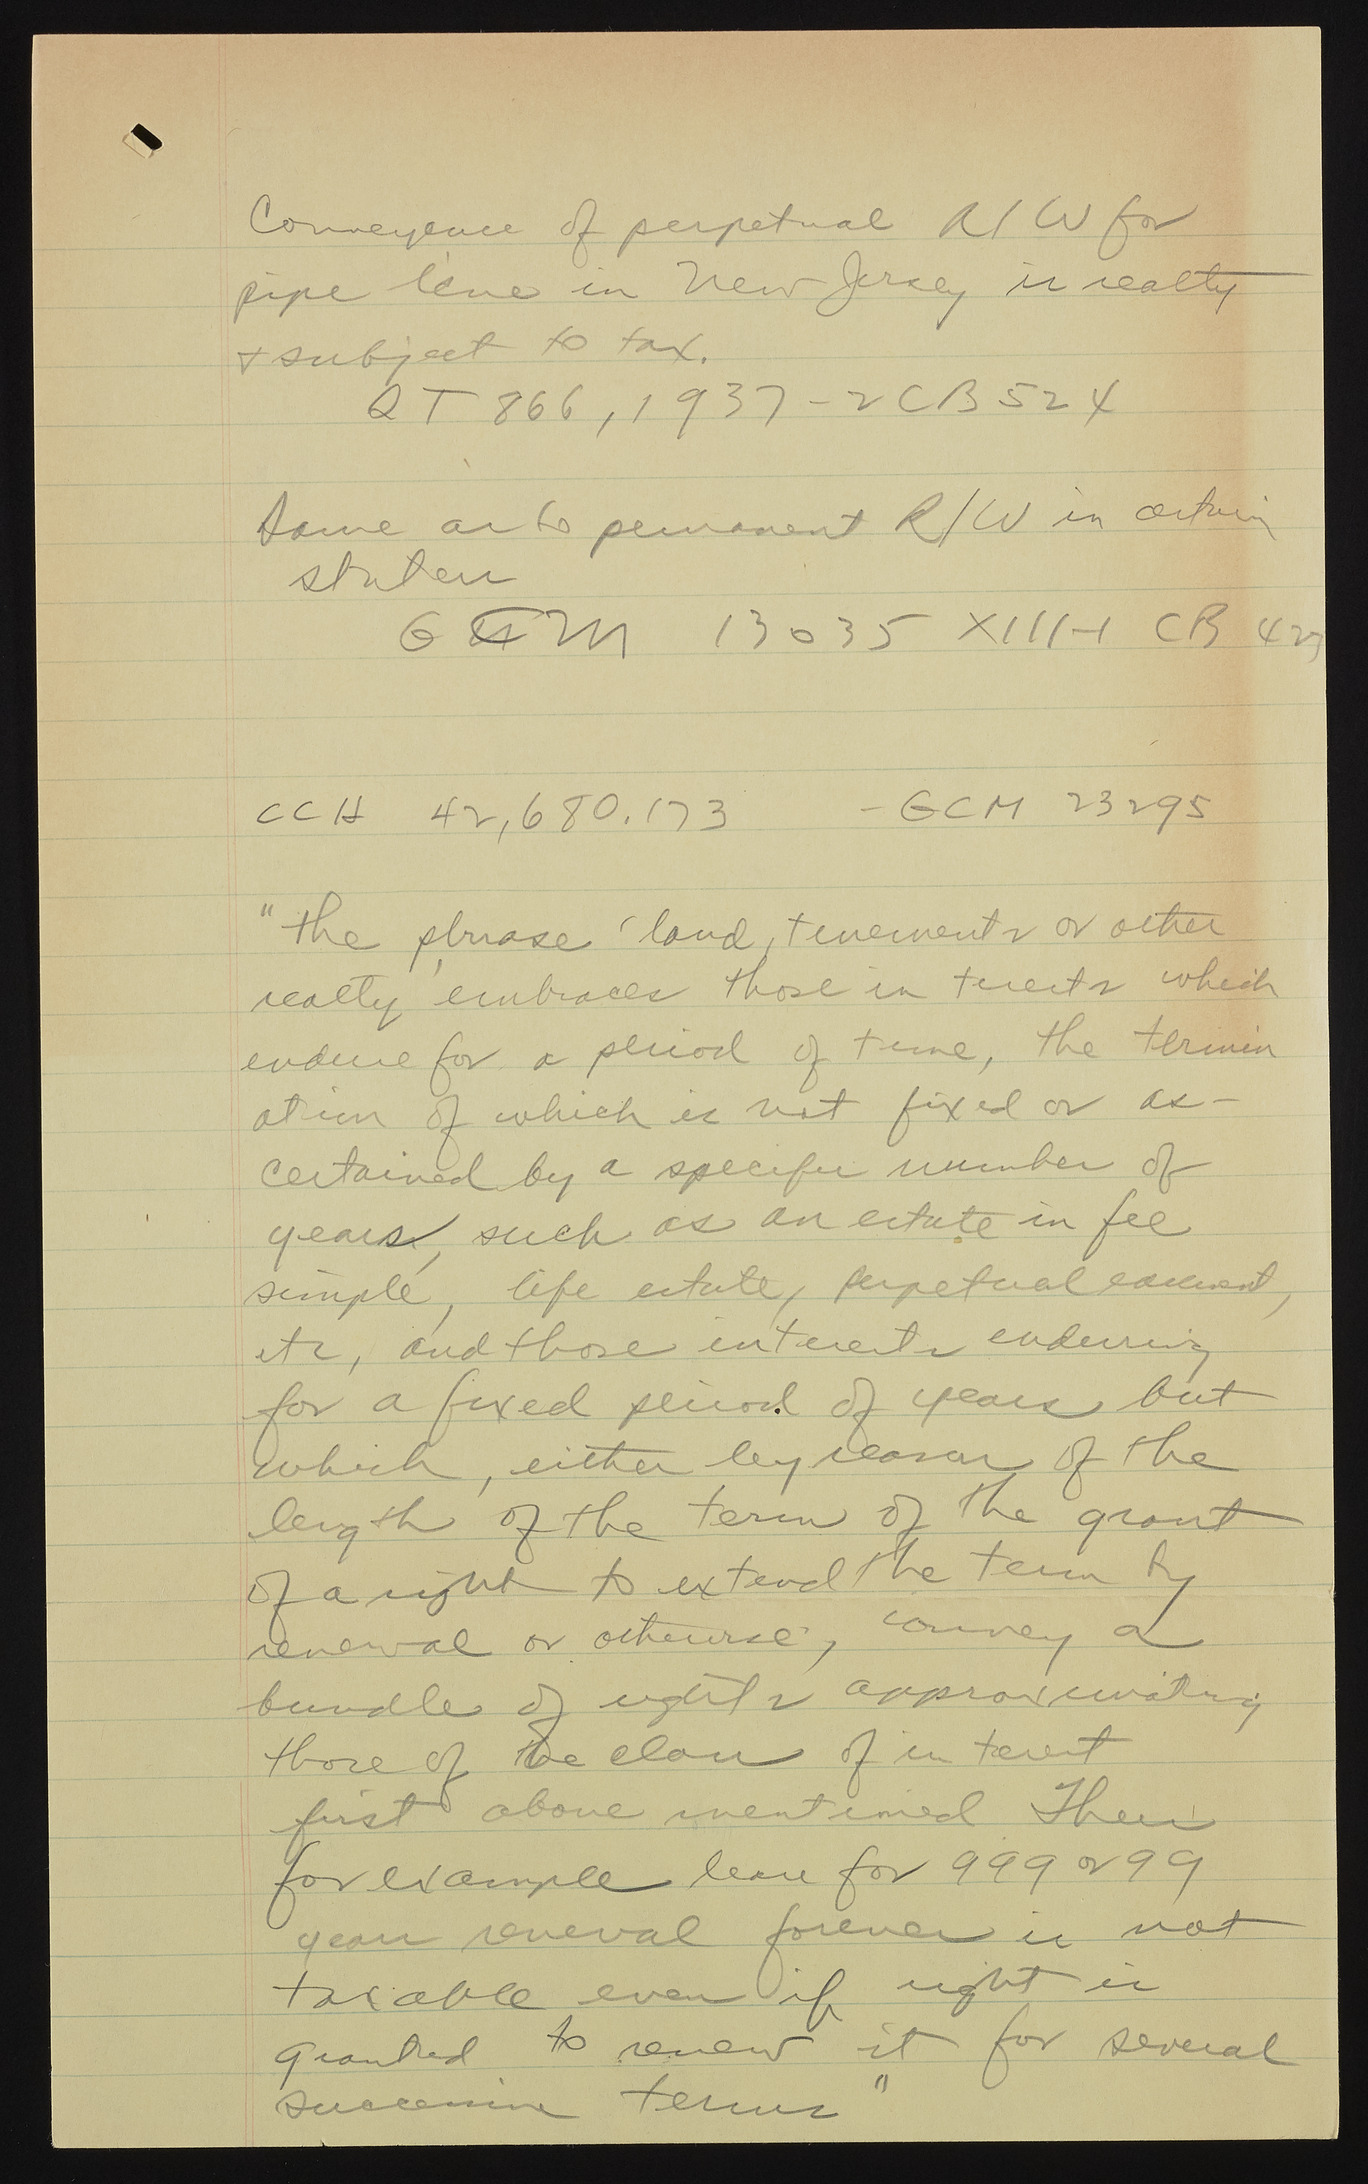 Conveyence of perpetual R/W for
pipe line in New Jersey is realty
& subject to tax.
ST 866, 1937-2 CB 524
Same as to permanent R/W in certain
states
GCM 13035 XIII-1 CB 423
CCH 42,680.173 - GCM 23295
"the phrase 'land, tenements or other
realty' embraces those interests which
endure for a period of time, the termin
ation of which is not fixed or as-
certained by a specific number of
years, such as an estate in fee
simple, life estate, perpetual easement,
etc, and those interests enduring
for a fixed period of years but
which, either by reason of the
length of the term of the grant
of a right to extend the term by
renewal or otherwise, convey a
bundle of rights approximating
those of the class of interest
first above mentioned Then
for example lease for 999 or 99
years renewal forever is not
taxable even if right is
granted to renew it for several
successive terms"